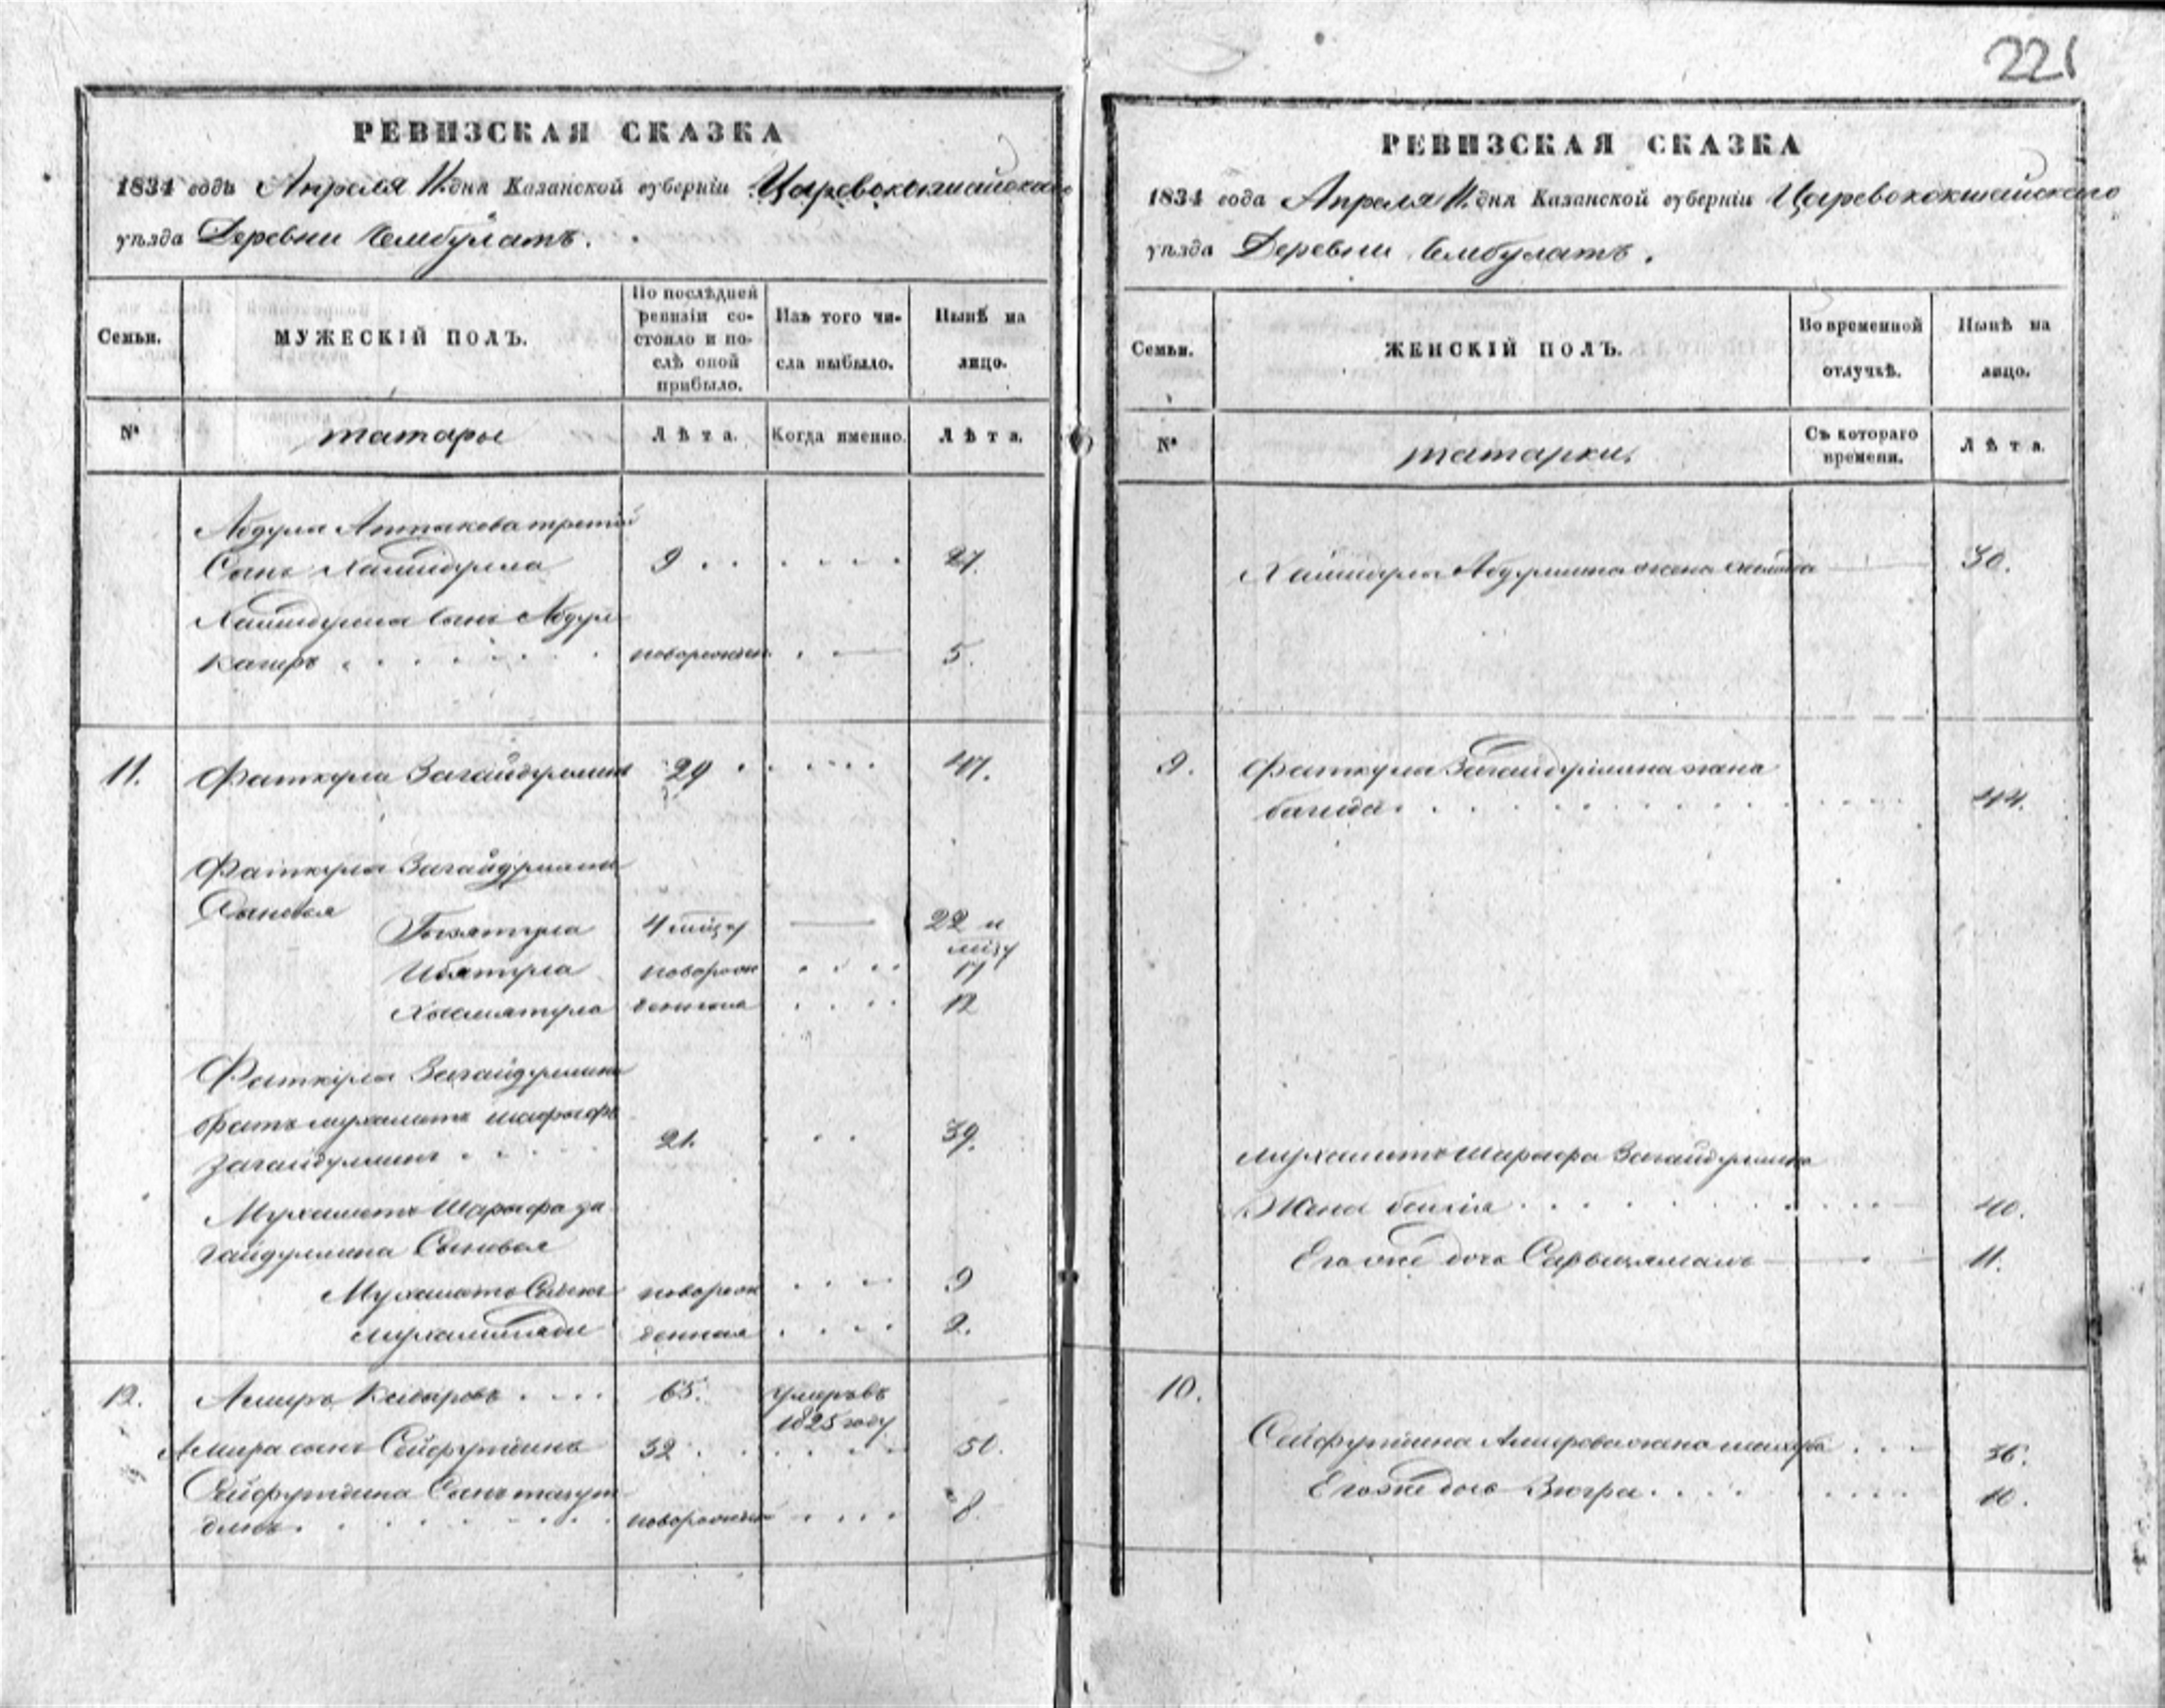 221
РЕВИЗСКАЯ СКАЗКА
1834 года Апреля 11 дня Казанской губерніи Царевококшайскаго
уѣзда Деревни Сембулатъ.
Семьи.
МУЖЕСКІЙ ПОЛЪ.
По послѣдней
ревизіи со-
стояло и по-
слѣ оной
прибыло.
Изъ того чи-
сла выбыло.
Нынѣ на
лицо.
№
татары
Лѣта.
Когда именно.
Лѣта.
Абдула третій
Сынъ Хамидулла 9 27.
Хамидулла Сынъ Абдул
каиръ новорожден 5.
11. Фаткула Загайдуллинъ 29 47.
Фаткула Загайдуллина
Сыновья
4 22 и
Ибятула новорож 17
Хисматула денныя 12
Фаткула Загайдуллина
братъ мухаметъ шарафъ
Загайдуллинъ 21. 39.
Мухаметъ Шарафа За
гайдуллина Сыновья
Мухаметъ новорож 9
денныя 2.
12. Амиръ 65. умеръ въ
1825 году
Амира сынъ Сейфутдинъ 32 50.
Сейфутдина Сынъ
динъ новорожден 8.
РЕВИЗСКАЯ СКАЗКА
1834 года Апреля 11 дня Казанской губерніи Царевококшайскаго
уѣзда Деревни Сембулатъ.
Семьи.
ЖЕНСКІЙ ПОЛЪ.
Во временной
отлучкѣ.
Нынѣ на
лицо.
№
татарки.
Съ котораго
времени.
Лѣта.
Хамидула Абдуллина жена 30.
9. Фаткула Загайдуллина жена
44.
Мухаметъ Шарафа Загайдуллина
Жена 40.
Его же дочь 11.
10.
Сейфутдина Амирова жена 36.
Его же дочь Зюгра 10.